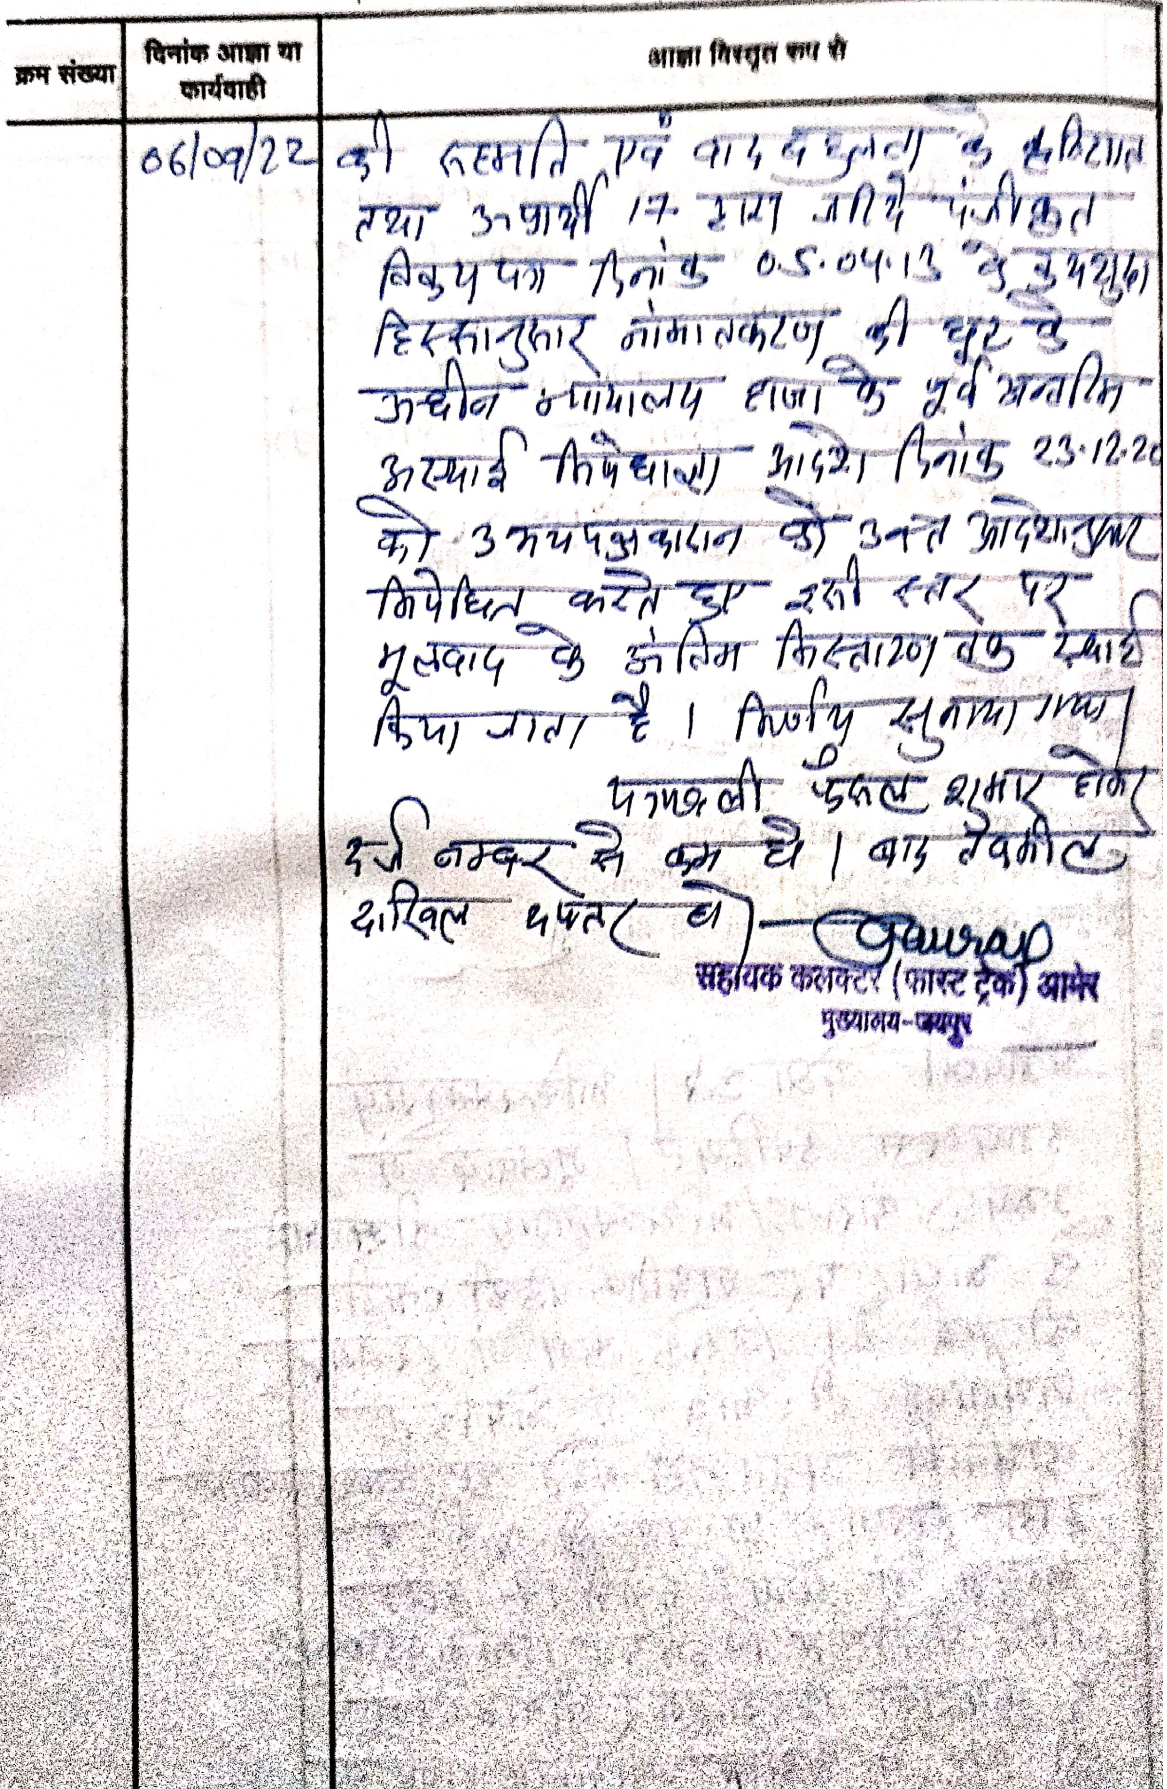 क्रम संख्या
दिनांक आज्ञा या
कार्यवाही
आज्ञा विस्तृत रूप से
06/09/22
की सहमति एवं वाद के
तथा अप्रार्थी 17 द्वारा जरिये पंजीकृत
विक्रय पत्र दिनांक 05.04.13 के क्रयशुदा
हिस्सानुसार नामान्तकरण की छूट के
अधीन न्यायालय हाजा के पूर्व अन्तरिम
अस्थाई निषेधाज्ञा आदेश दिनांक 23.12.20
को उभयपक्षकारान को उक्त आदेशानुसार
निषेधित करते हुए इसी स्तर पर
मूलवाद के अंतिम निस्तारण तक स्थाई
किया जाता है । निर्णय सुनाया गया।
पत्रावली फैसल शुमार होकर
दर्ज नम्बर से कम हो । बाद तकमील
दाखिल दफ्तर हो
सहायक कलक्टर (फास्ट ट्रेक) आमेर
मुख्यालय-जयपुर